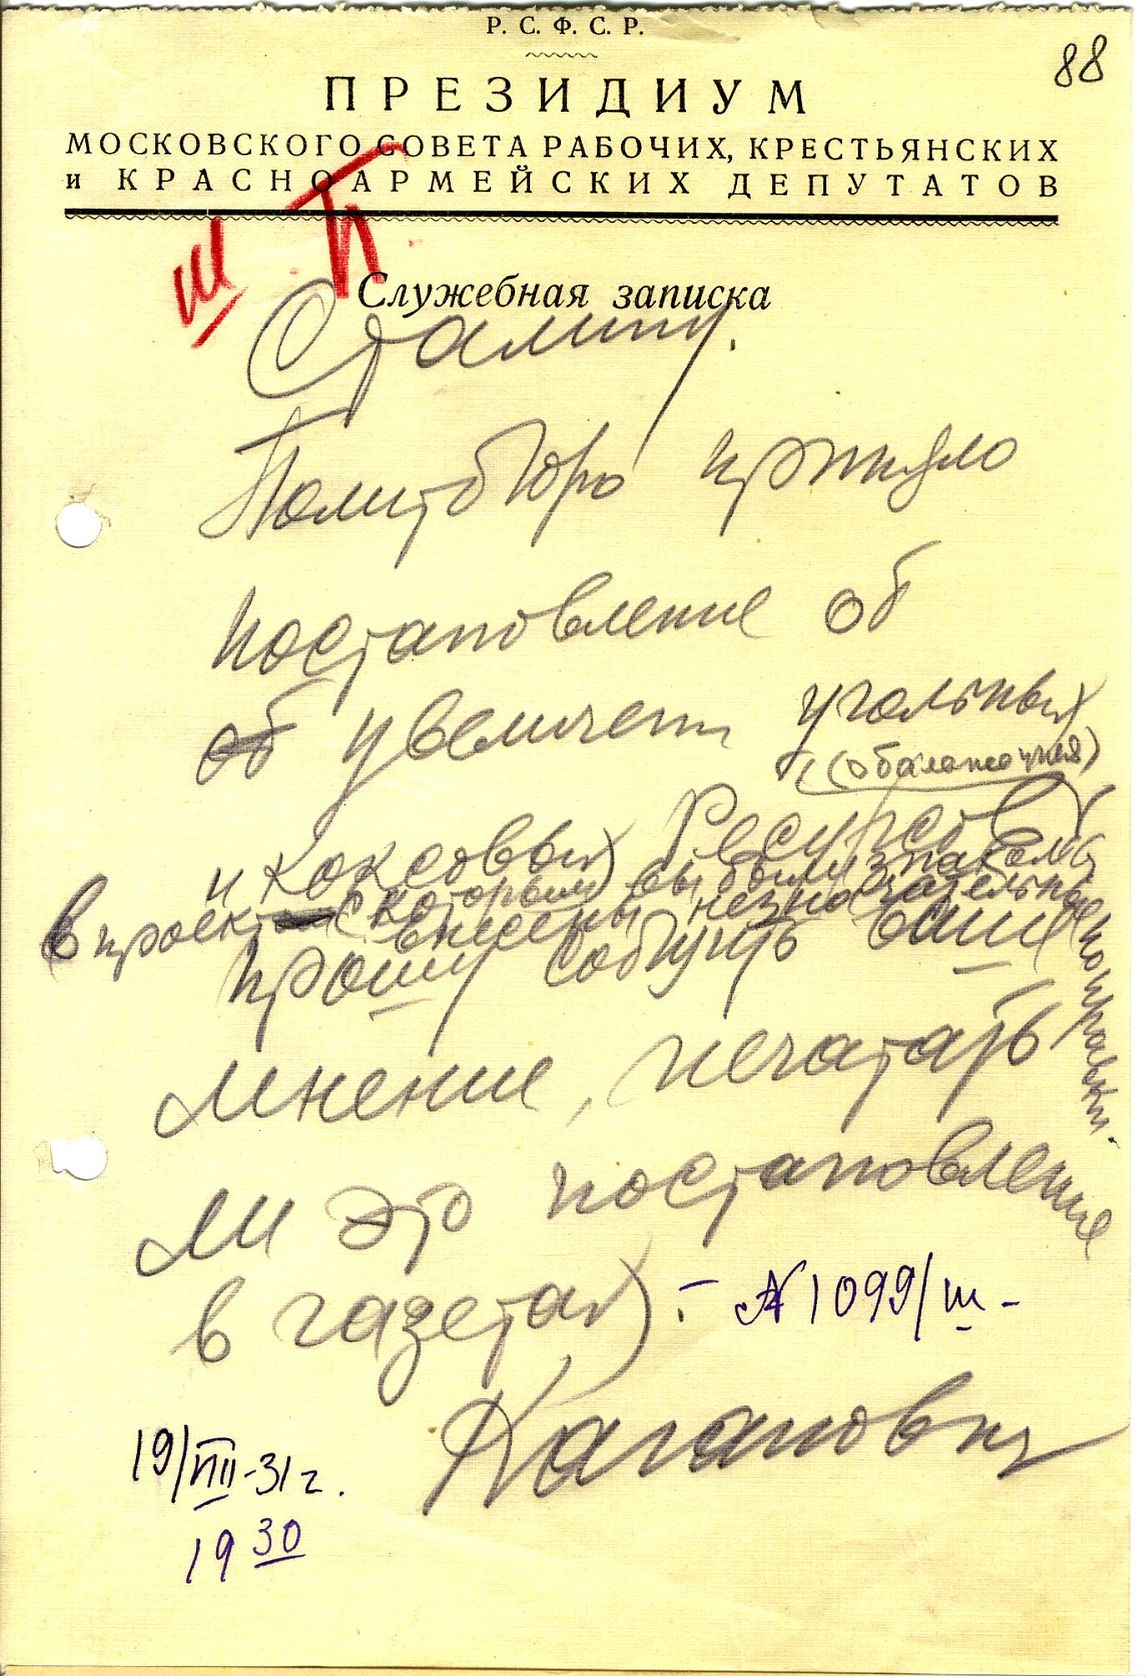 Р. С. Ф. С. Р.
88
ПРЕЗИДИУМ
МОСКОВСКОГО СОВЕТА РАБОЧИХ, КРЕСТЬЯНСКИХ
и КРАСНОАРМЕЙСКИХ ДЕПУТАТОВ
Ш П
Служебная записка
Сталину.
Политбюро приняло
постановление об
об увеличении угольных
и коксовых ресурсов
в проект с которым вы были знакомы
внесены незначительные поправки.
прошу сообщить ваше
мнение, печатать
ли это постановление
в газетах. –
№ 1099/ш –
Каганович
19/VIII-31 г.
19 30